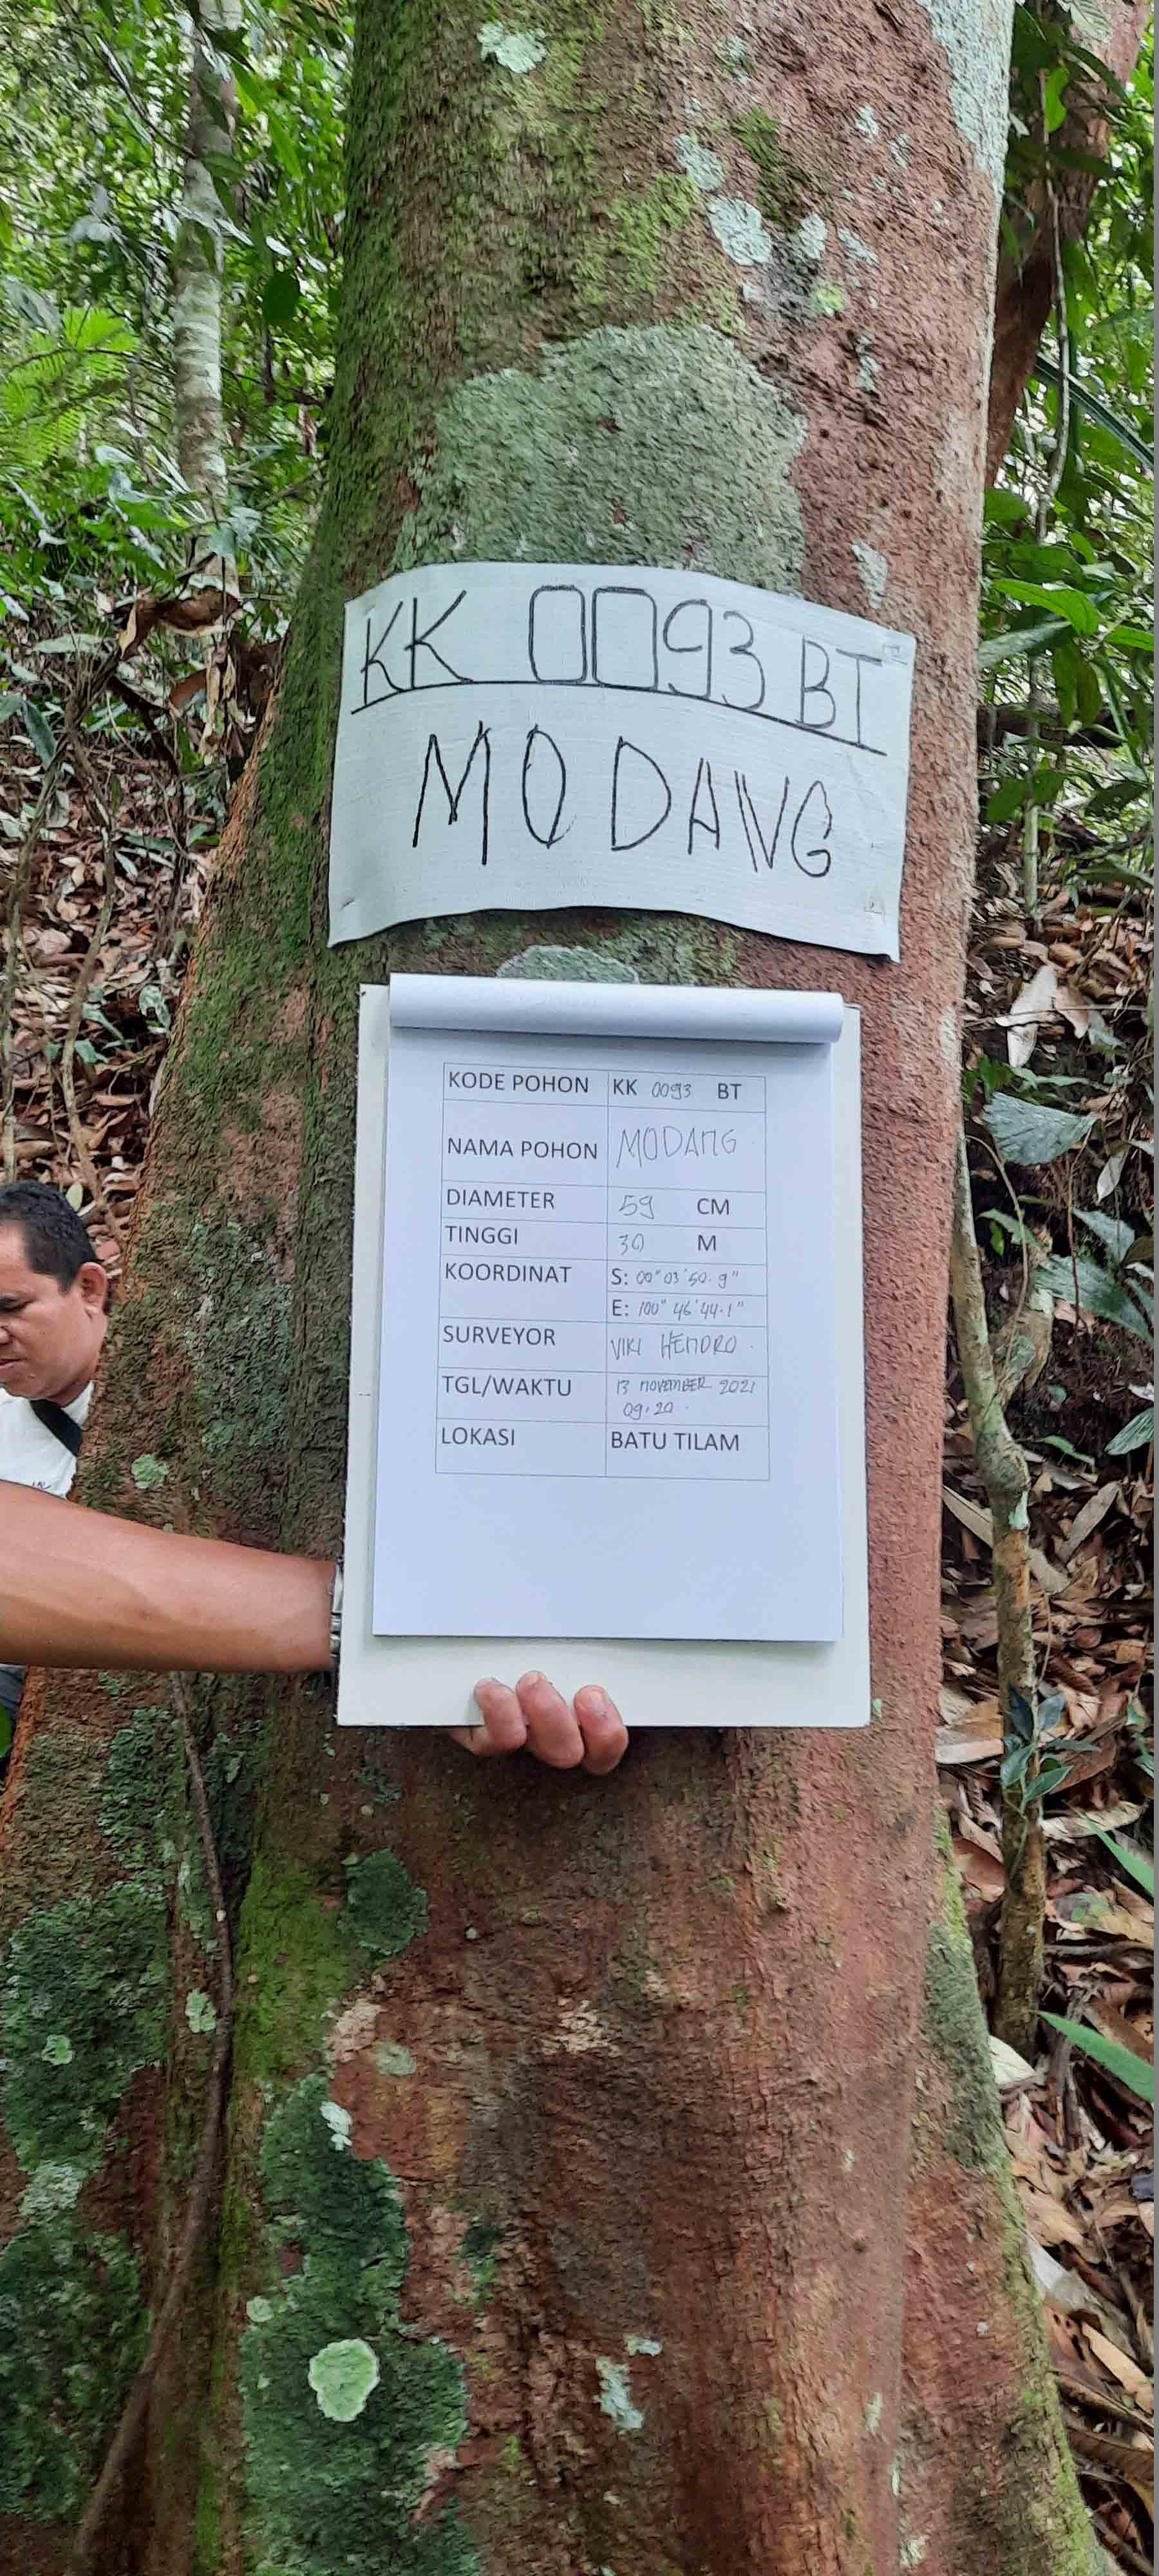 KK 0093 BT
MODANG
KODE POHON KK 0093 BT
NAMA POHON MODANG
DIAMETER 59 CM
TINGGI 30 M
KOORDINAT S: 00° 03' 50.9"
E: 100° 46' 44.1"
SURVEYOR VIKI HENDRO.
TGL/WAKTU 13 NOVEMBER 2021
09.20.
LOKASI BATU TILAM